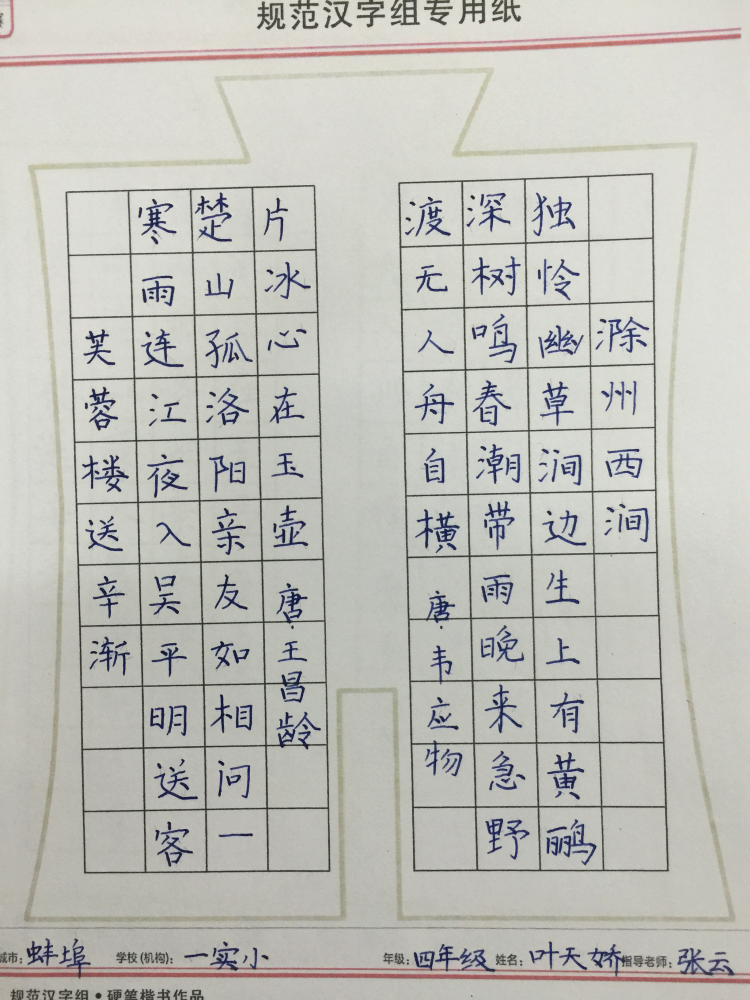 规范汉字组专用纸
滁州西涧
独怜幽草涧边生上有黄鹂
深树鸣春潮带雨晚来急野
渡无人舟自横唐·韦应物
芙蓉楼送辛渐
寒雨连江夜入吴平明送客
楚山孤洛阳亲友如相问一
片冰心在玉壶唐·王昌龄
城市：蚌埠 学校(机构)：一实小 年级：四年级 姓名：叶天娇 指导老师：张云
规范汉字组·硬笔楷书作品